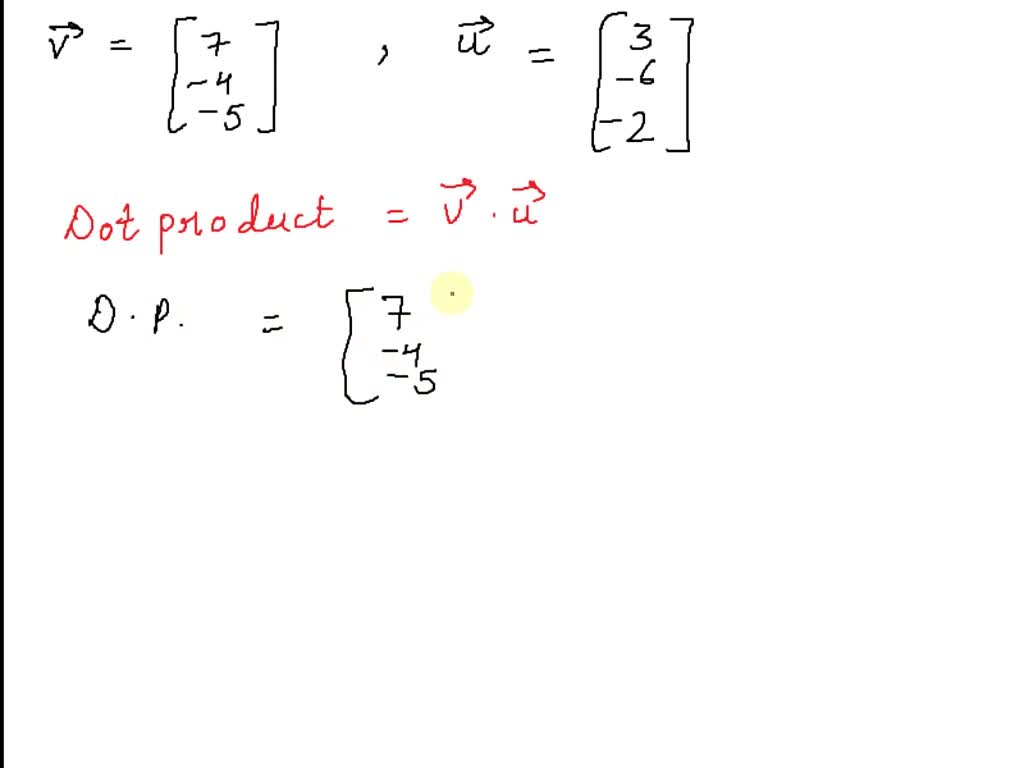 v⃗ = [ 7 -4 -5 ] , u⃗ = [ 3 -6 -2 ]
Dot product = v⃗ . u⃗
D.P. = [ 7 -4 -5